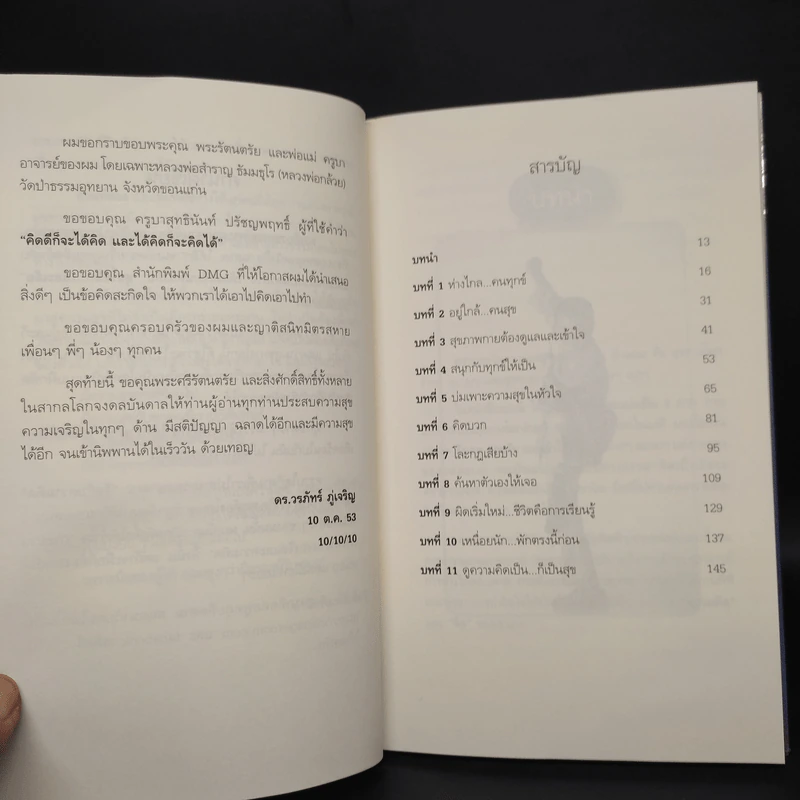 ผมขอกราบขอบพระคุณ พระรัตนตรัย และพ่อแม่ ครูบา
อาจารย์ของผม โดยเฉพาะหลวงพ่อสำราญ ธัมมธุโร (หลวงพ่อกล้วย)
วัดป่าธรรมอุทยาน จังหวัดขอนแก่น
ขอขอบคุณ ครูบาสุทธินันท์ ปรัชญพฤทธิ์ ผู้ที่ใช้คำว่า
“คิดดีก็จะได้คิด และได้คิดก็จะคิดได้”
ขอขอบคุณ สำนักพิมพ์ DMG ที่ให้โอกาสผมได้นำเสนอ
สิ่งดีๆ เป็นข้อคิดสะกิดใจ ให้พวกเราได้เอาไปคิดเอาไปทำ
ขอขอบคุณครอบครัวของผมและญาติสนิทมิตรสหาย
เพื่อนๆ พี่ๆ น้องๆ ทุกคน
สุดท้ายนี้ ขอคุณพระศรีรัตนตรัย และสิ่งศักดิ์สิทธิ์ทั้งหลาย
ในสากลโลกจงดลบันดาลให้ท่านผู้อ่านทุกท่านประสบความสุข
ความเจริญในทุกๆ ด้าน มีสติปัญญา ฉลาดได้อีกและมีความสุข
ได้อีก จนเข้านิพพานได้ในเร็ววัน ด้วยเทอญ
ดร.วรภัทร์ ภู่เจริญ
10 ต.ค. 53
10/10/10
สารบัญ
บทนำ 13
บทที่ 1 ห่างไกล...คนทุกข์ 16
บทที่ 2 อยู่ใกล้...คนสุข 31
บทที่ 3 สุขภาพกายต้องดูแลและเข้าใจ 41
บทที่ 4 สนุกกับทุกข์ให้เป็น 53
บทที่ 5 บ่มเพาะความสุขในหัวใจ 65
บทที่ 6 คิดบวก 81
บทที่ 7 โละกฎเสียบ้าง 95
บทที่ 8 ค้นหาตัวเองให้เจอ 109
บทที่ 9 ผิดเริ่มใหม่...ชีวิตคือการเรียนรู้ 129
บทที่ 10 เหนื่อยนัก...พักตรงนี้ก่อน 137
บทที่ 11 ดูความคิดเป็น...ก็เป็นสุข 145